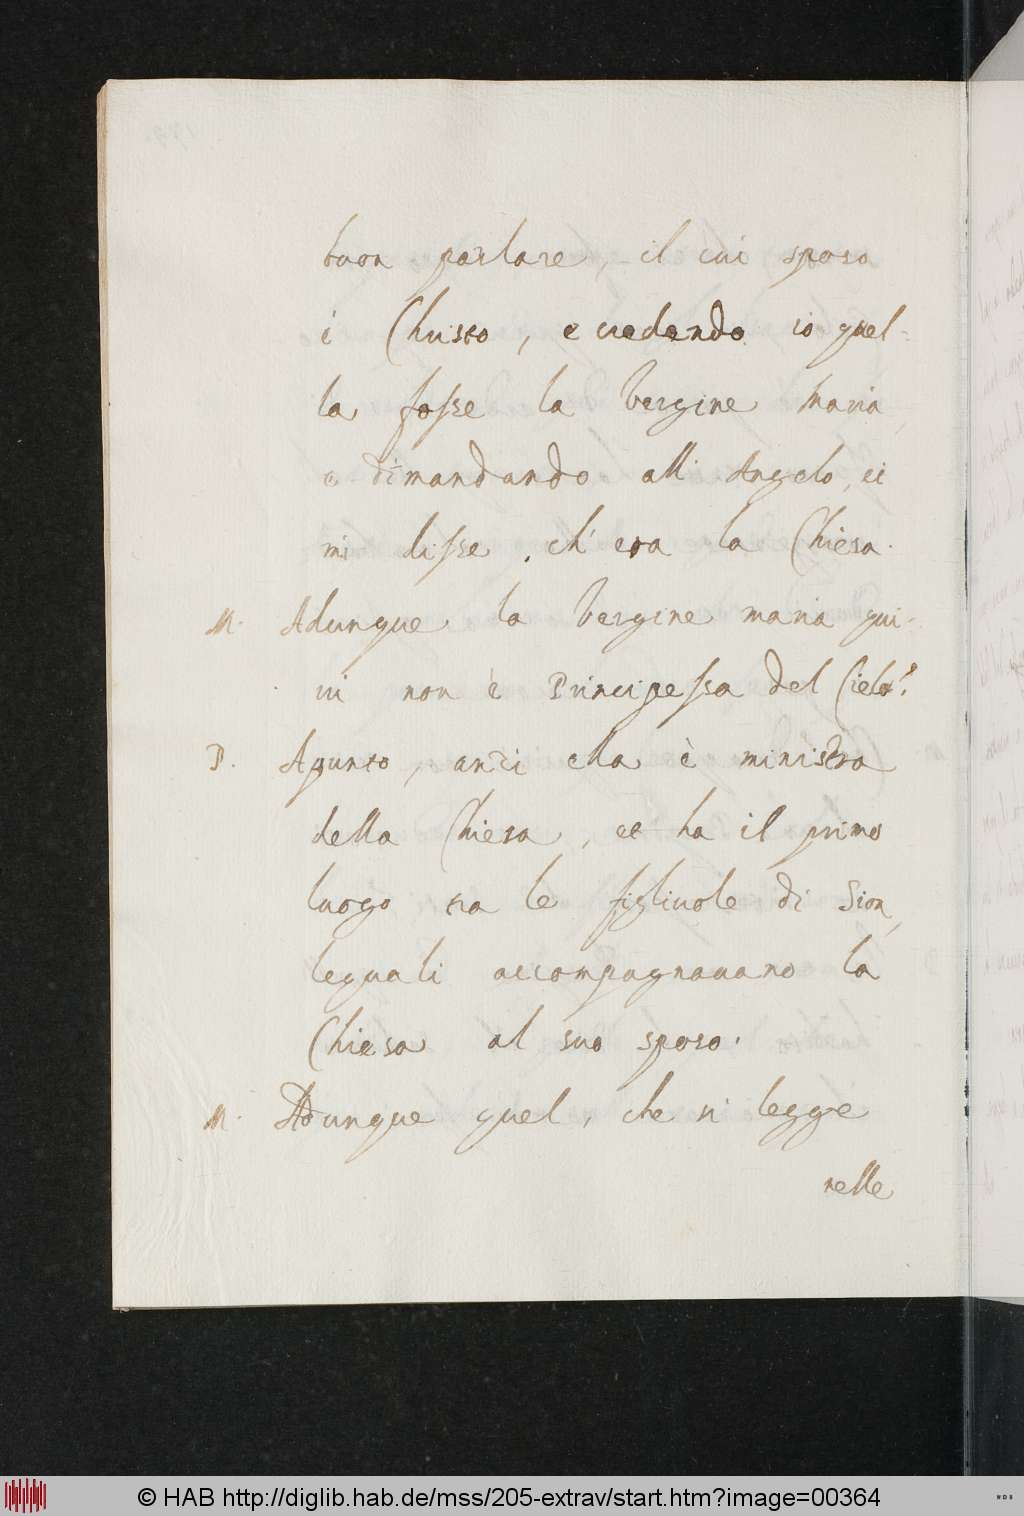 buon parlare, il cui sposo
è Christo, e credendo io quel-
la fosse la Vergine Maria,
e dimandando all' Angelo, ei
mi disse, ch' era la Chiesa.
M. Adunque la Vergine maria qui-
vi non è Principessa del Cielo?
P. Apunto, anzi ella è ministra
della Chiesa, et ha il primo
luogo tra le figliuole di Sion,
lequali accompagnavano la
Chiesa al suo sposo.
M. Adunque quel, che si legge
nelle
© HAB http://diglib.hab.de/mss/205-extrav/start.htm?image=00364